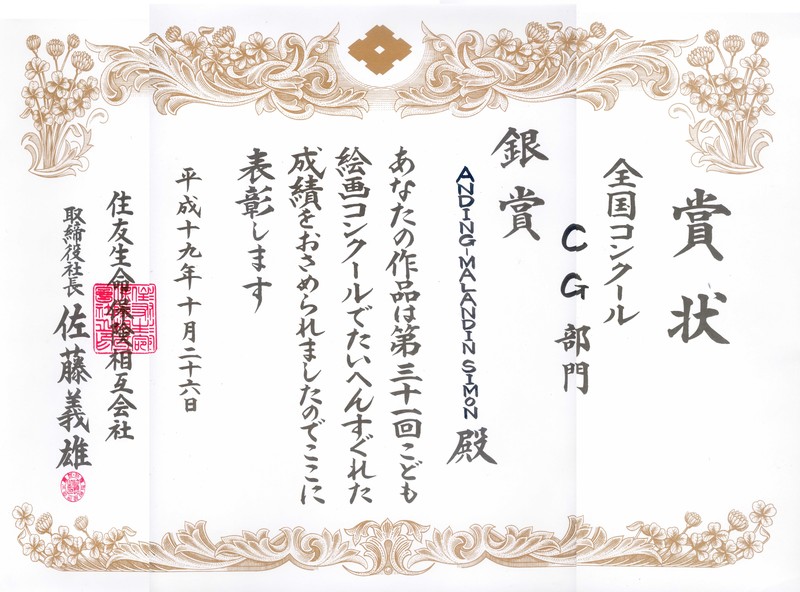 賞状
全国コンクール
CG部門
銀賞
ANDING-MALANDIN SIMON 殿
あなたの作品は第三十一回こども
絵画コンクールでたいへんすぐれた
成績をおさめられましたのでここに
表彰します
平成十九年十月二十六日
住友生命保険相互会社
取締役社長 佐藤義雄